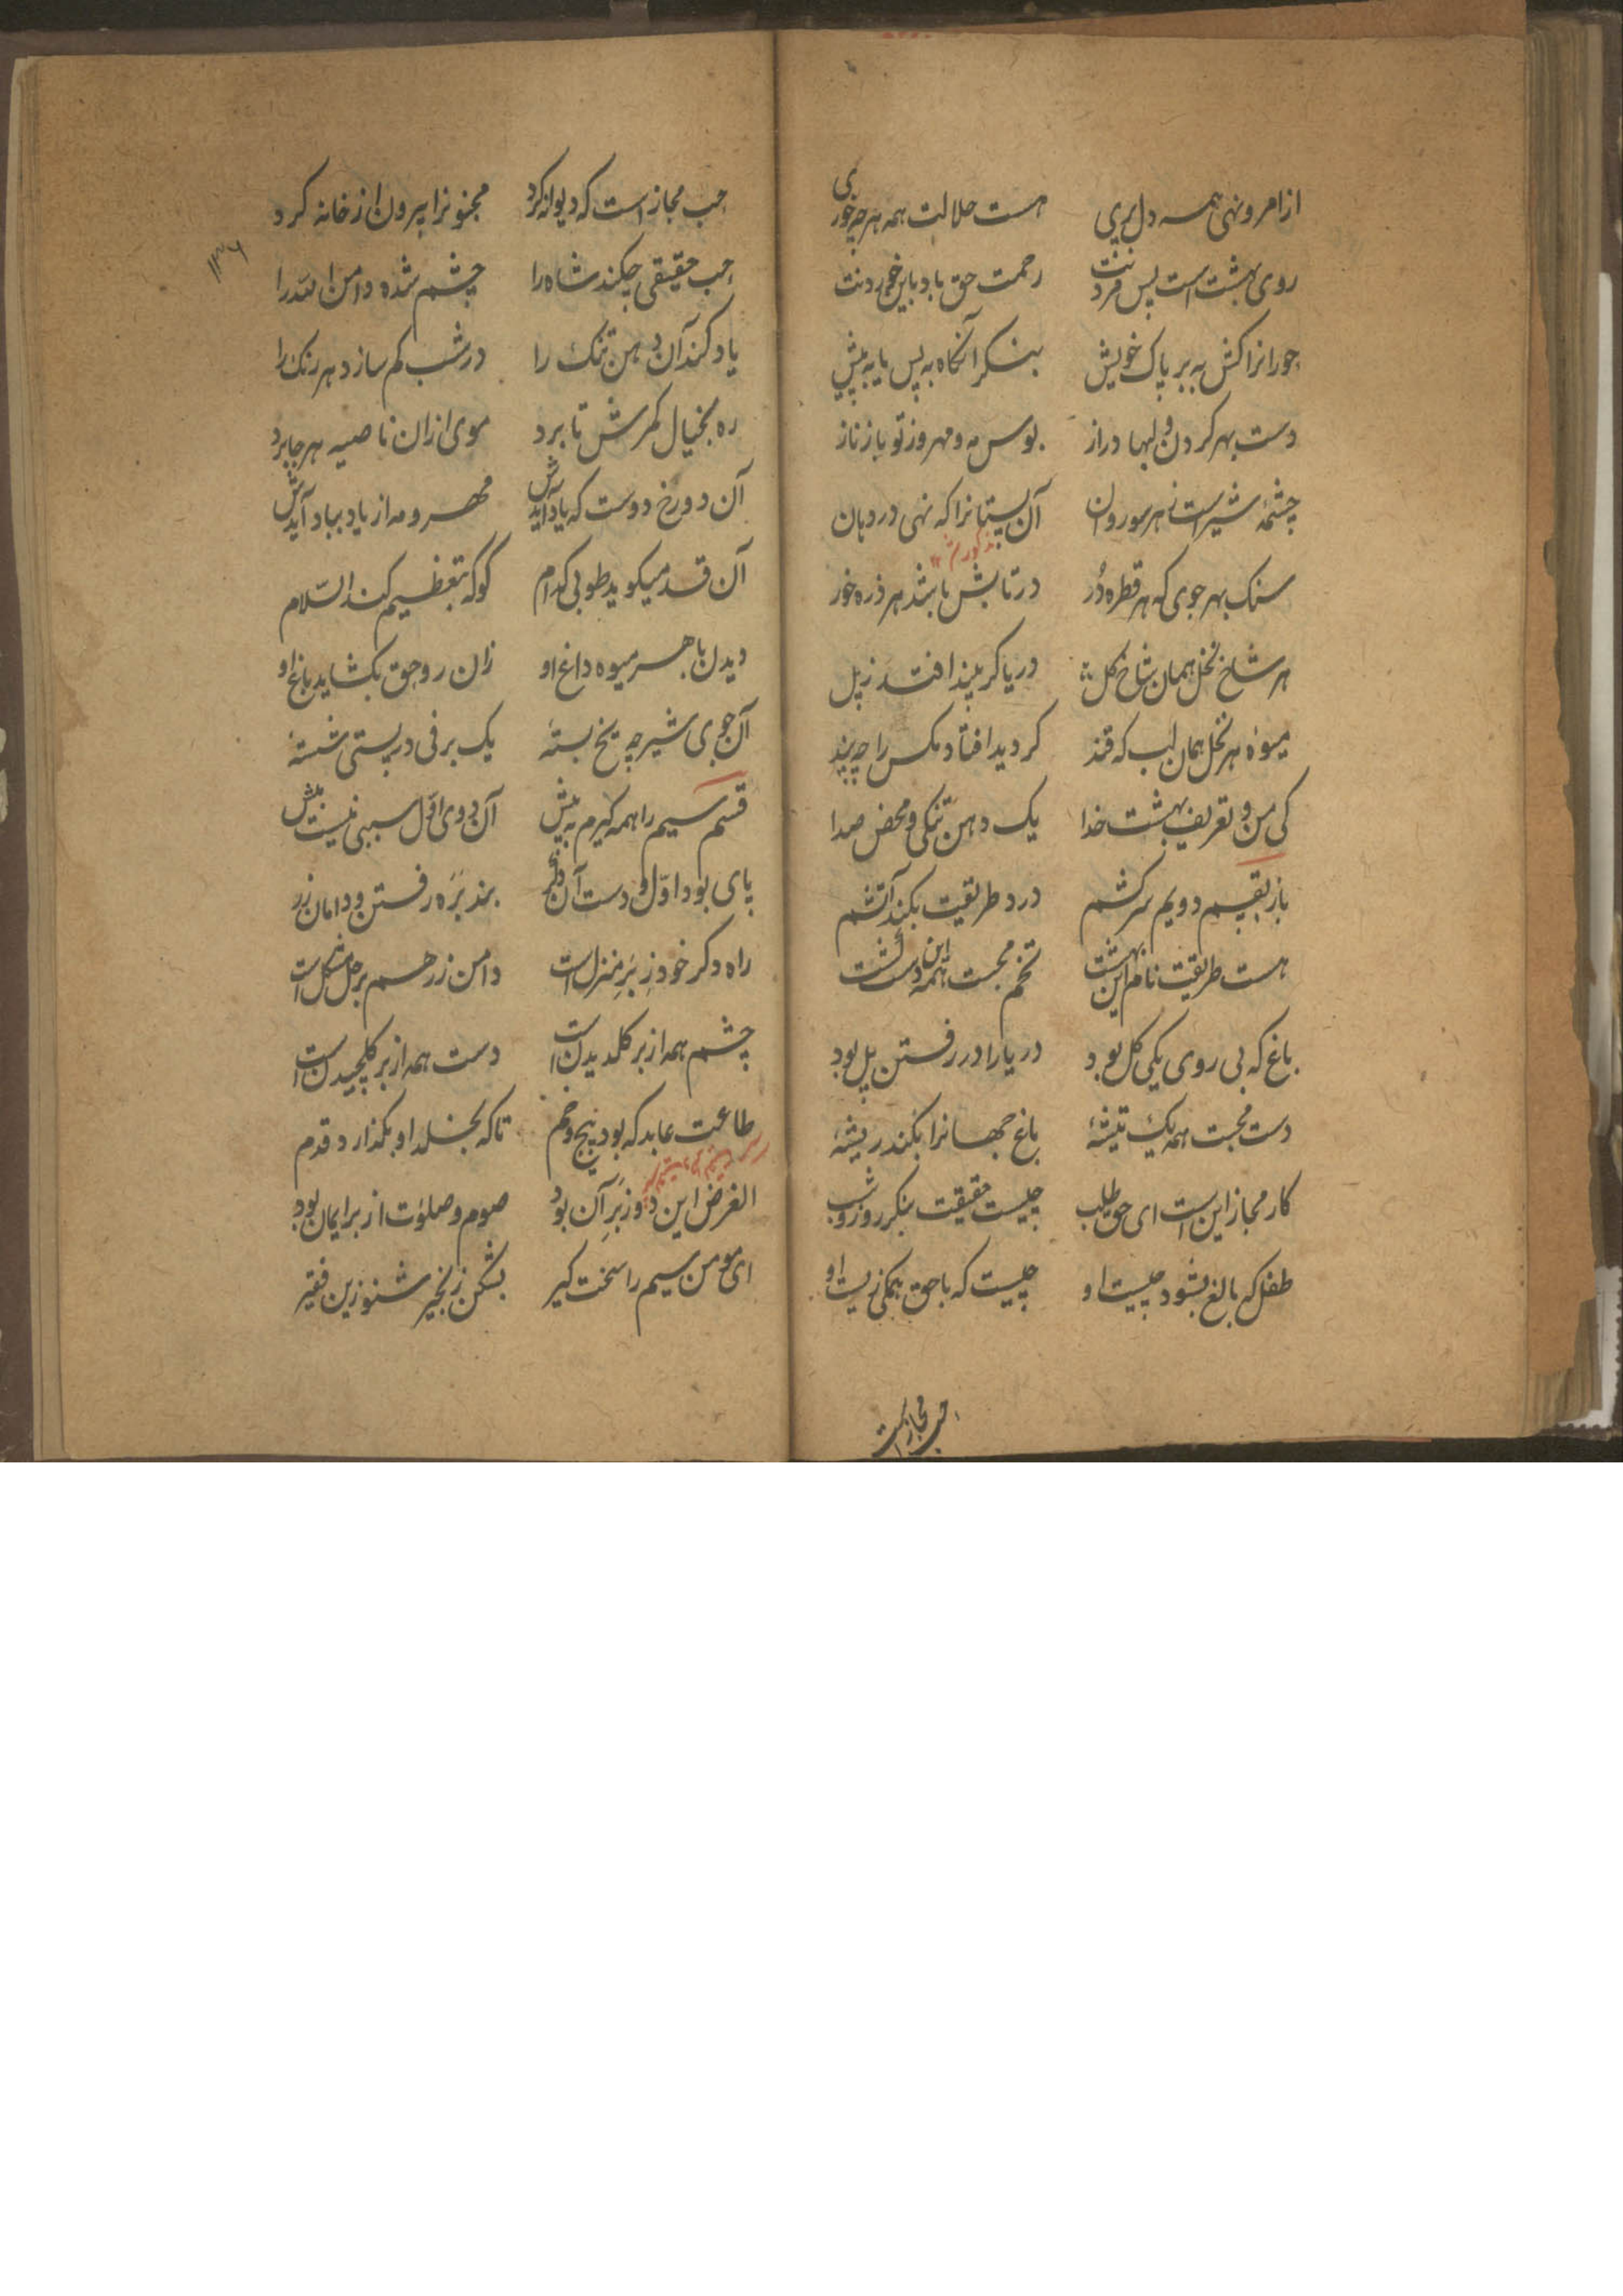 از امر و نهی همه دل بری هست حلالت همه هر چه خوری
روی بهشت است پس مردنت رحمت حق باد باین خوردنت
حورانرا کش به بر پاک خویش بنکر آنکاه به پس یا به پیش
دست بهر کردن و لبها دراز بوس مه و مهر وز تو باز ناز
چشمهٔ شیر است ز هر سو روان آن پستانرا که نهی در دهان
سنک بهر جوی که هر قطره دُر در تابش باشد هر ذره خور
هر شاخ نخل همان شاخ کل دریا کر بیند افتد ز پل
میوهٔ هر نخل همان لب که قند کر دید افتاد مکس را چه پند
کی من و تعریف بهشت خدا یک دهن تنکی و محض صدا
باز بقسیم دویم سر کشم درد طریقیت بکند آتشم
هست طریقیت نام این بهشت تخم محبت همه این دست کشت
باغ که بی روی یکی کل بود دریا را در رفتن پل بود
دست محبت همه یک تیشهٔ باغ جهانرا بکند ریشهٔ
کار مجاز این است ای حق طلب چیست حقیقت بنکر روز و شب
طفل که بالغ بشود چیست او چیست که با حق همکی زیست او
حب مجاز است
حب مجاز است که دیوانه کرد مجنونرا بیرون از خانه کرد
حب حقیقی چکند شاه را چشم شده دامن الله را
یاد کند آن دهن تنک را در شب کم سازد هر رنک را
ره بخیال کمرش تا برد موی ازان ناصیه هر جا برد
آن دو رخ دوست که یاد آیدش مهر و مه از یاد بباد آیدش
آن قد میکوید طوبی کدام کو که بتعظیم کند السّلام
دیدن با هر میوه داغ او زان رو حق بکشاید باغ او
آن جوی شیر چه یخ بستهٔ یک برفی در پستی شستهٔ
قسم سیم را همه کیرم به پیش آن دوی اوّل سببی نیست بیش
پای بود اوّل و دست آن دکر بهر ره رفتن و دامان زر
راه دکر خود ز بَرِ منزل است دامن زر هم بر حل مشکل است
چشم همه از بر کلدیدن است دست همه از بر کلچیدن است
طاعت عابد که بود پیچ و خم تا که بخلد او بکذارد قدم
الغرض این دو ز بَرِ آن بود صوم و صلوٰت از بر ایمان بود
ای مومن سیم را سخت کیر بشکن زنجیر شنو زین فقیر